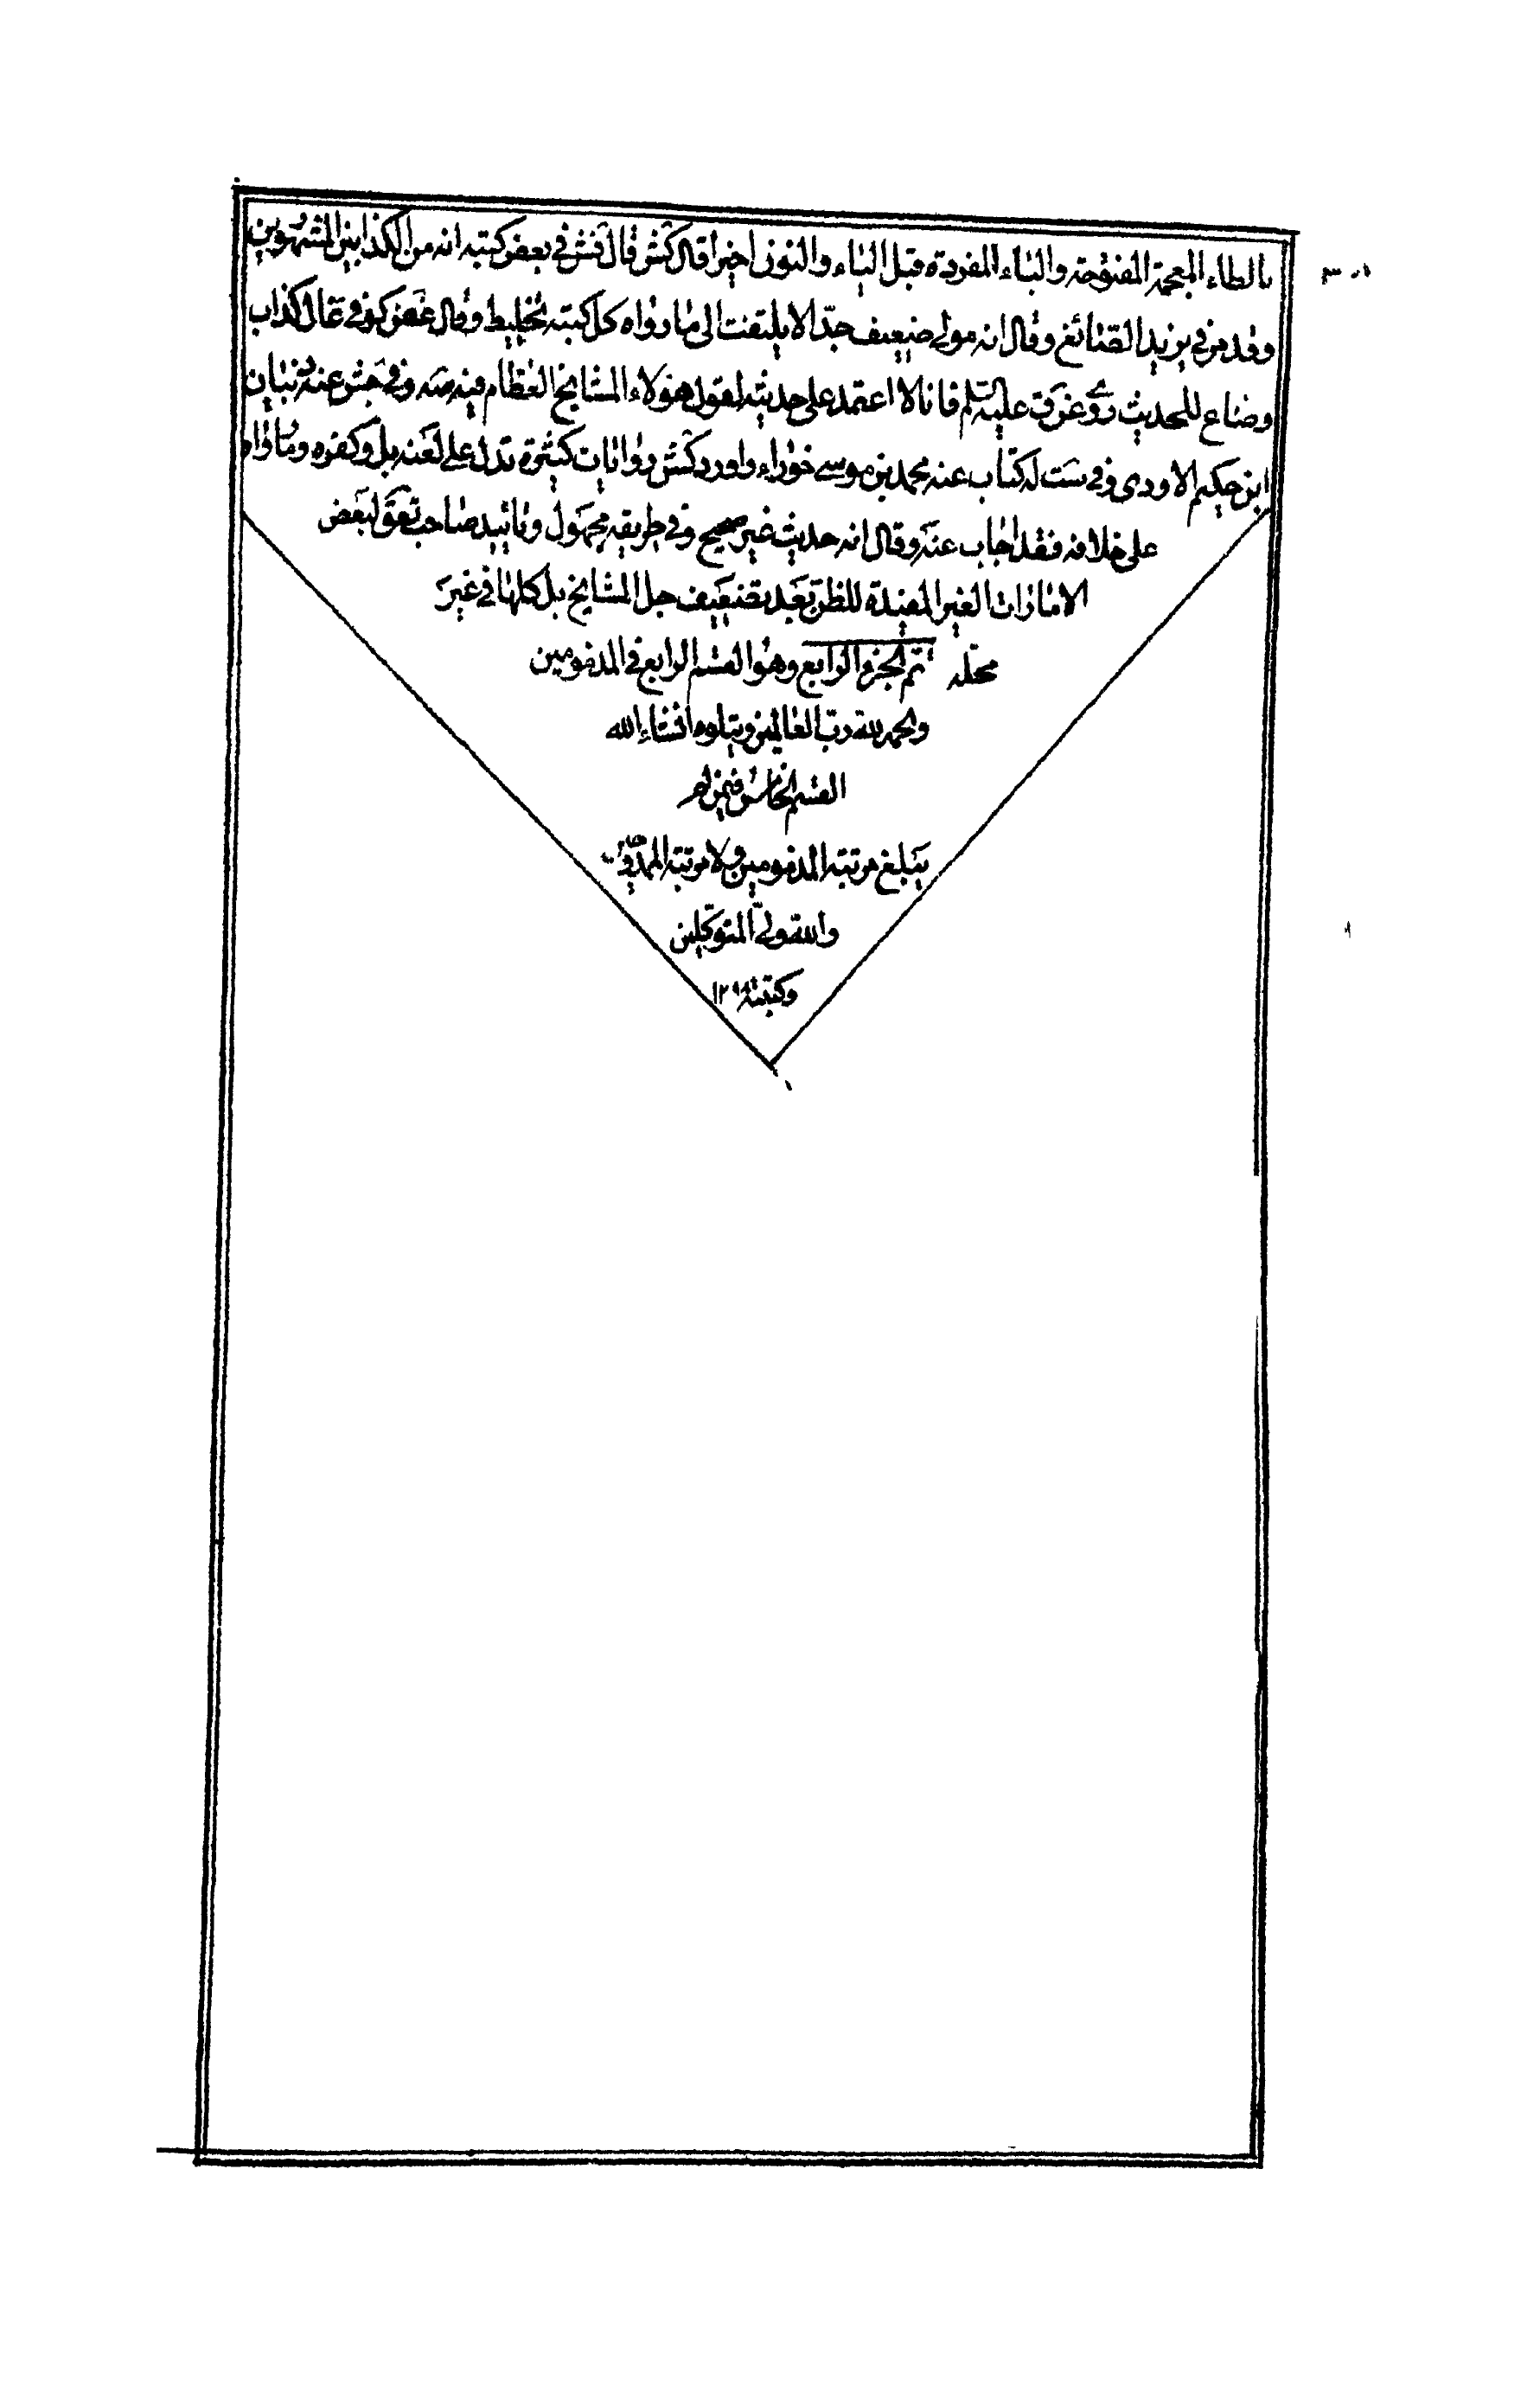 بالظاء المعجمة المفتوحة والباء المفردة قبل الياء والنون اخيرا قال كش قال فش في بعض كتبه انه من الكذابين المشهورين
وقد مر في يزيد الصائغ وقال انه مولى ضعيف جدا لا يلتفت الى ما رواه كل كتبه تخليط وقال غض كوفي غال كذاب
وضاع للحديث روى عن ق عليه السلم فانا لا اعتمد على حديثه لقول هؤلاء المشايخ العظام فيه صه وفي جش عنه نبيان
ابن حكيم الاودي وفي ست له كتاب عنه محمد بن موسى خوراء واورد كش روايات كثيرة تدل على لعنه بل وكفره وما رواه
على خلافه فقد اجاب عنه وقال انه حديث غير صحيح وفي طريقه مجهول وتاييد صاحب تعق لبعض
الامارات الغير المفيدة للظن بعد تضعيف جل المشايخ بل كلها في غير
محله تم الجزو الرابع وهو القسم الرابع في المذمومين
والحمد لله رب العالمين ويتلوه انشاء الله
القسم الخامس فيمن لم
يبلغ مرتبة المذمومين ولا مرتبة الممدوحين
والله ولي المتوكلين
وكتبته ١٢٩٨
٣٠١